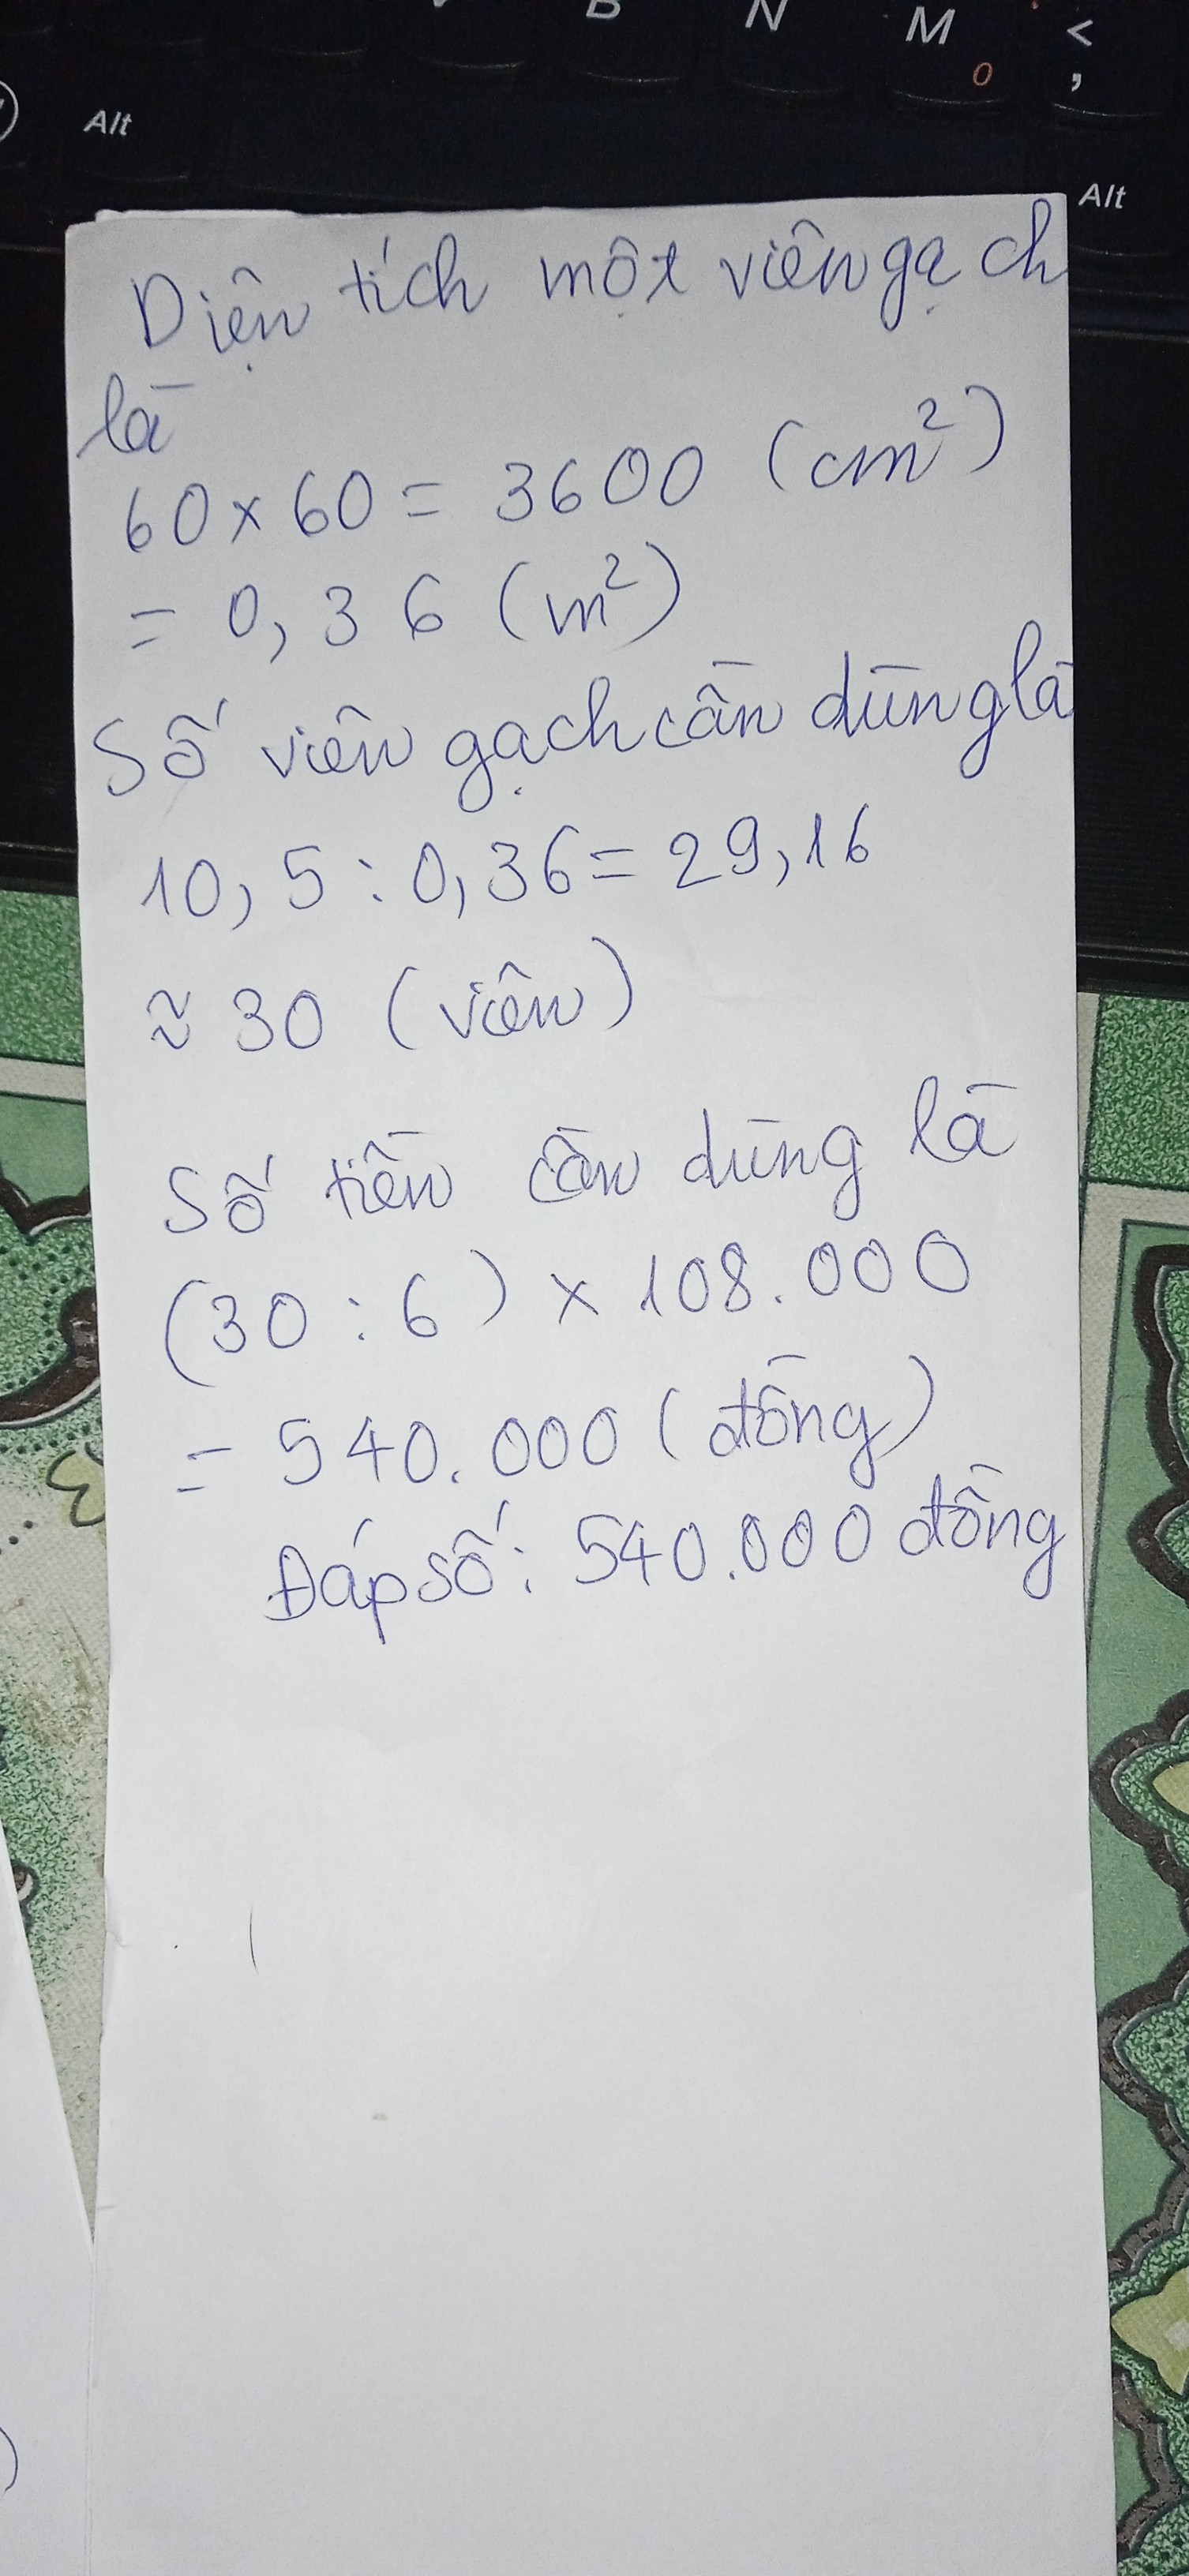 B N M <
0 ,
Alt
Alt
Diện tích một viên gạch
là
60 x 60 = 3600 (cm²)
= 0,36 (m²)
Số viên gạch cần dùng là
10,5 : 0,36 = 29,16
≈ 30 (viên)
Số tiền cần dùng là
(30 : 6) x 108.000
= 540.000 (đồng)
Đáp số: 540.000 đồng